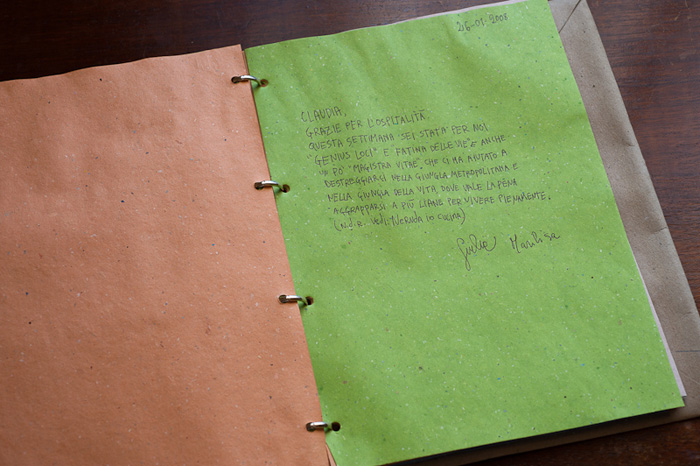 26-01-2008
CLAUDIA,
GRAZIE PER L'OSPITALITÀ.
QUESTA SETTIMANA SEI STATA PER NOI
"GENIUS LOCI" E FATINA DELLE VIE E ANCHE
UN PO' "MAGISTRA VITAE" CHE CI HA AIUTATO A
DESTREGGIARSI NELLA GIUNGLA METROPOLITANA E
NELLA GIUNGLA DELLA VITA DOVE VALE LA PENA
AGGRAPPARSI A PIÙ LIANE PER VIVERE PIENAMENTE.
(N.D.R. VEDI, NERUDA IO CUCINA)
Giulia Marilisa